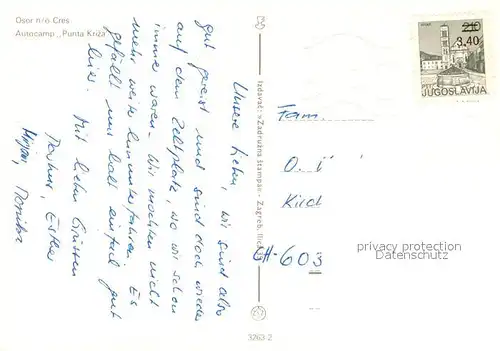 Osor n/o Cres
Autocamp „Punta Križa"
Unsere Lieben, wir sind also
gut gereist und sind doch wieder
auf dem Zeltplatz, wo wir schon
immer waren. Wir möchten nicht
mehr weiter hinunterfahren. Es
gefällt uns halt einfach gut
hier. Mit lieben Grüssen
Esther
Mirjam, Monika
Izdavač: »Zadružna štampa« - Zagreb,
3263 2
2.10
3.40
JUGOSLAVIJA
Fam.
CH-603
privacy protection
Datenschutz